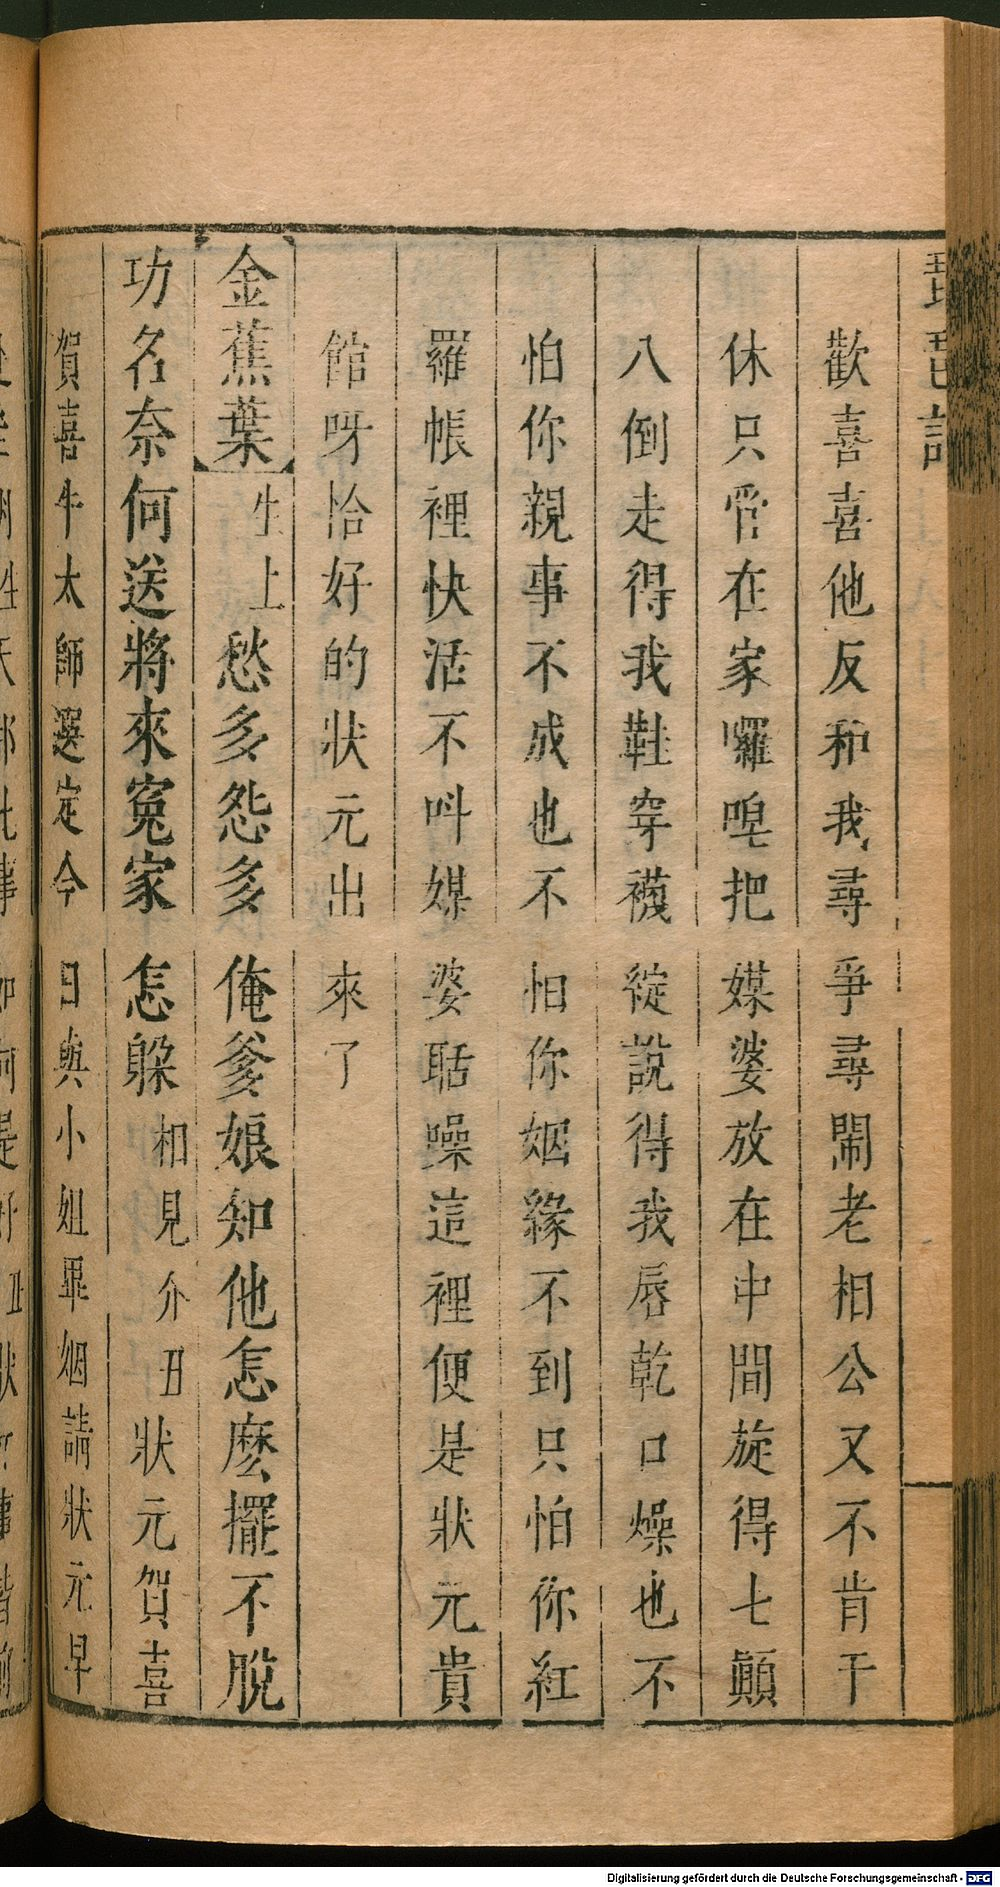 琵琶記
歡喜喜他反和我尋爭尋鬧老相公又不肯干
休只管在家囉唣把媒婆放在中間旋得七顛
八倒走得我鞋穿襪綻說得我唇乾口燥也不
怕你親事不成也不怕你姻緣不到只怕你紅
羅帳裡快活不叫媒婆聒噪這裡便是狀元貴
館呀恰好的狀元出來了
金蕉葉 生上 愁多怨多俺爹娘知他怎麽擺不脫
功名奈何送將來寃家怎躲 相見介 丑 狀元賀喜
賀喜牛太師選定今日與小姐畢姻請狀元早
Digitalisierung gefördert durch die Deutsche Forschungsgemeinschaft - DFG